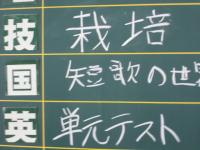 技 栽培
国 短歌の世
英 単元テスト